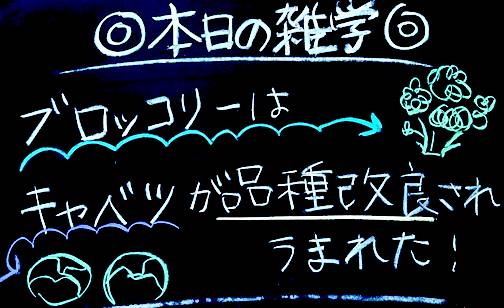 ◎本日の雑学◎
ブロッコリーは
キャベツが品種改良され
うまれた!